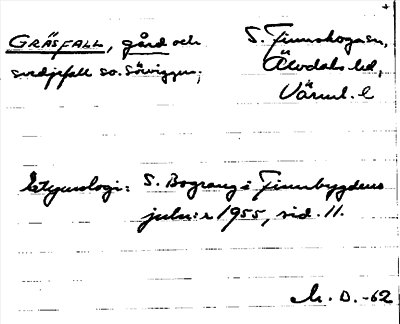 GRÄSFALL, gård och
svedjefall so. Sörviggen;
S. Finnskogasn,
Älvdals hd,
Värml. l
Etymologi: S. Bograng i Finnbygdens
julnr 1955, sid. 11.
D. -62